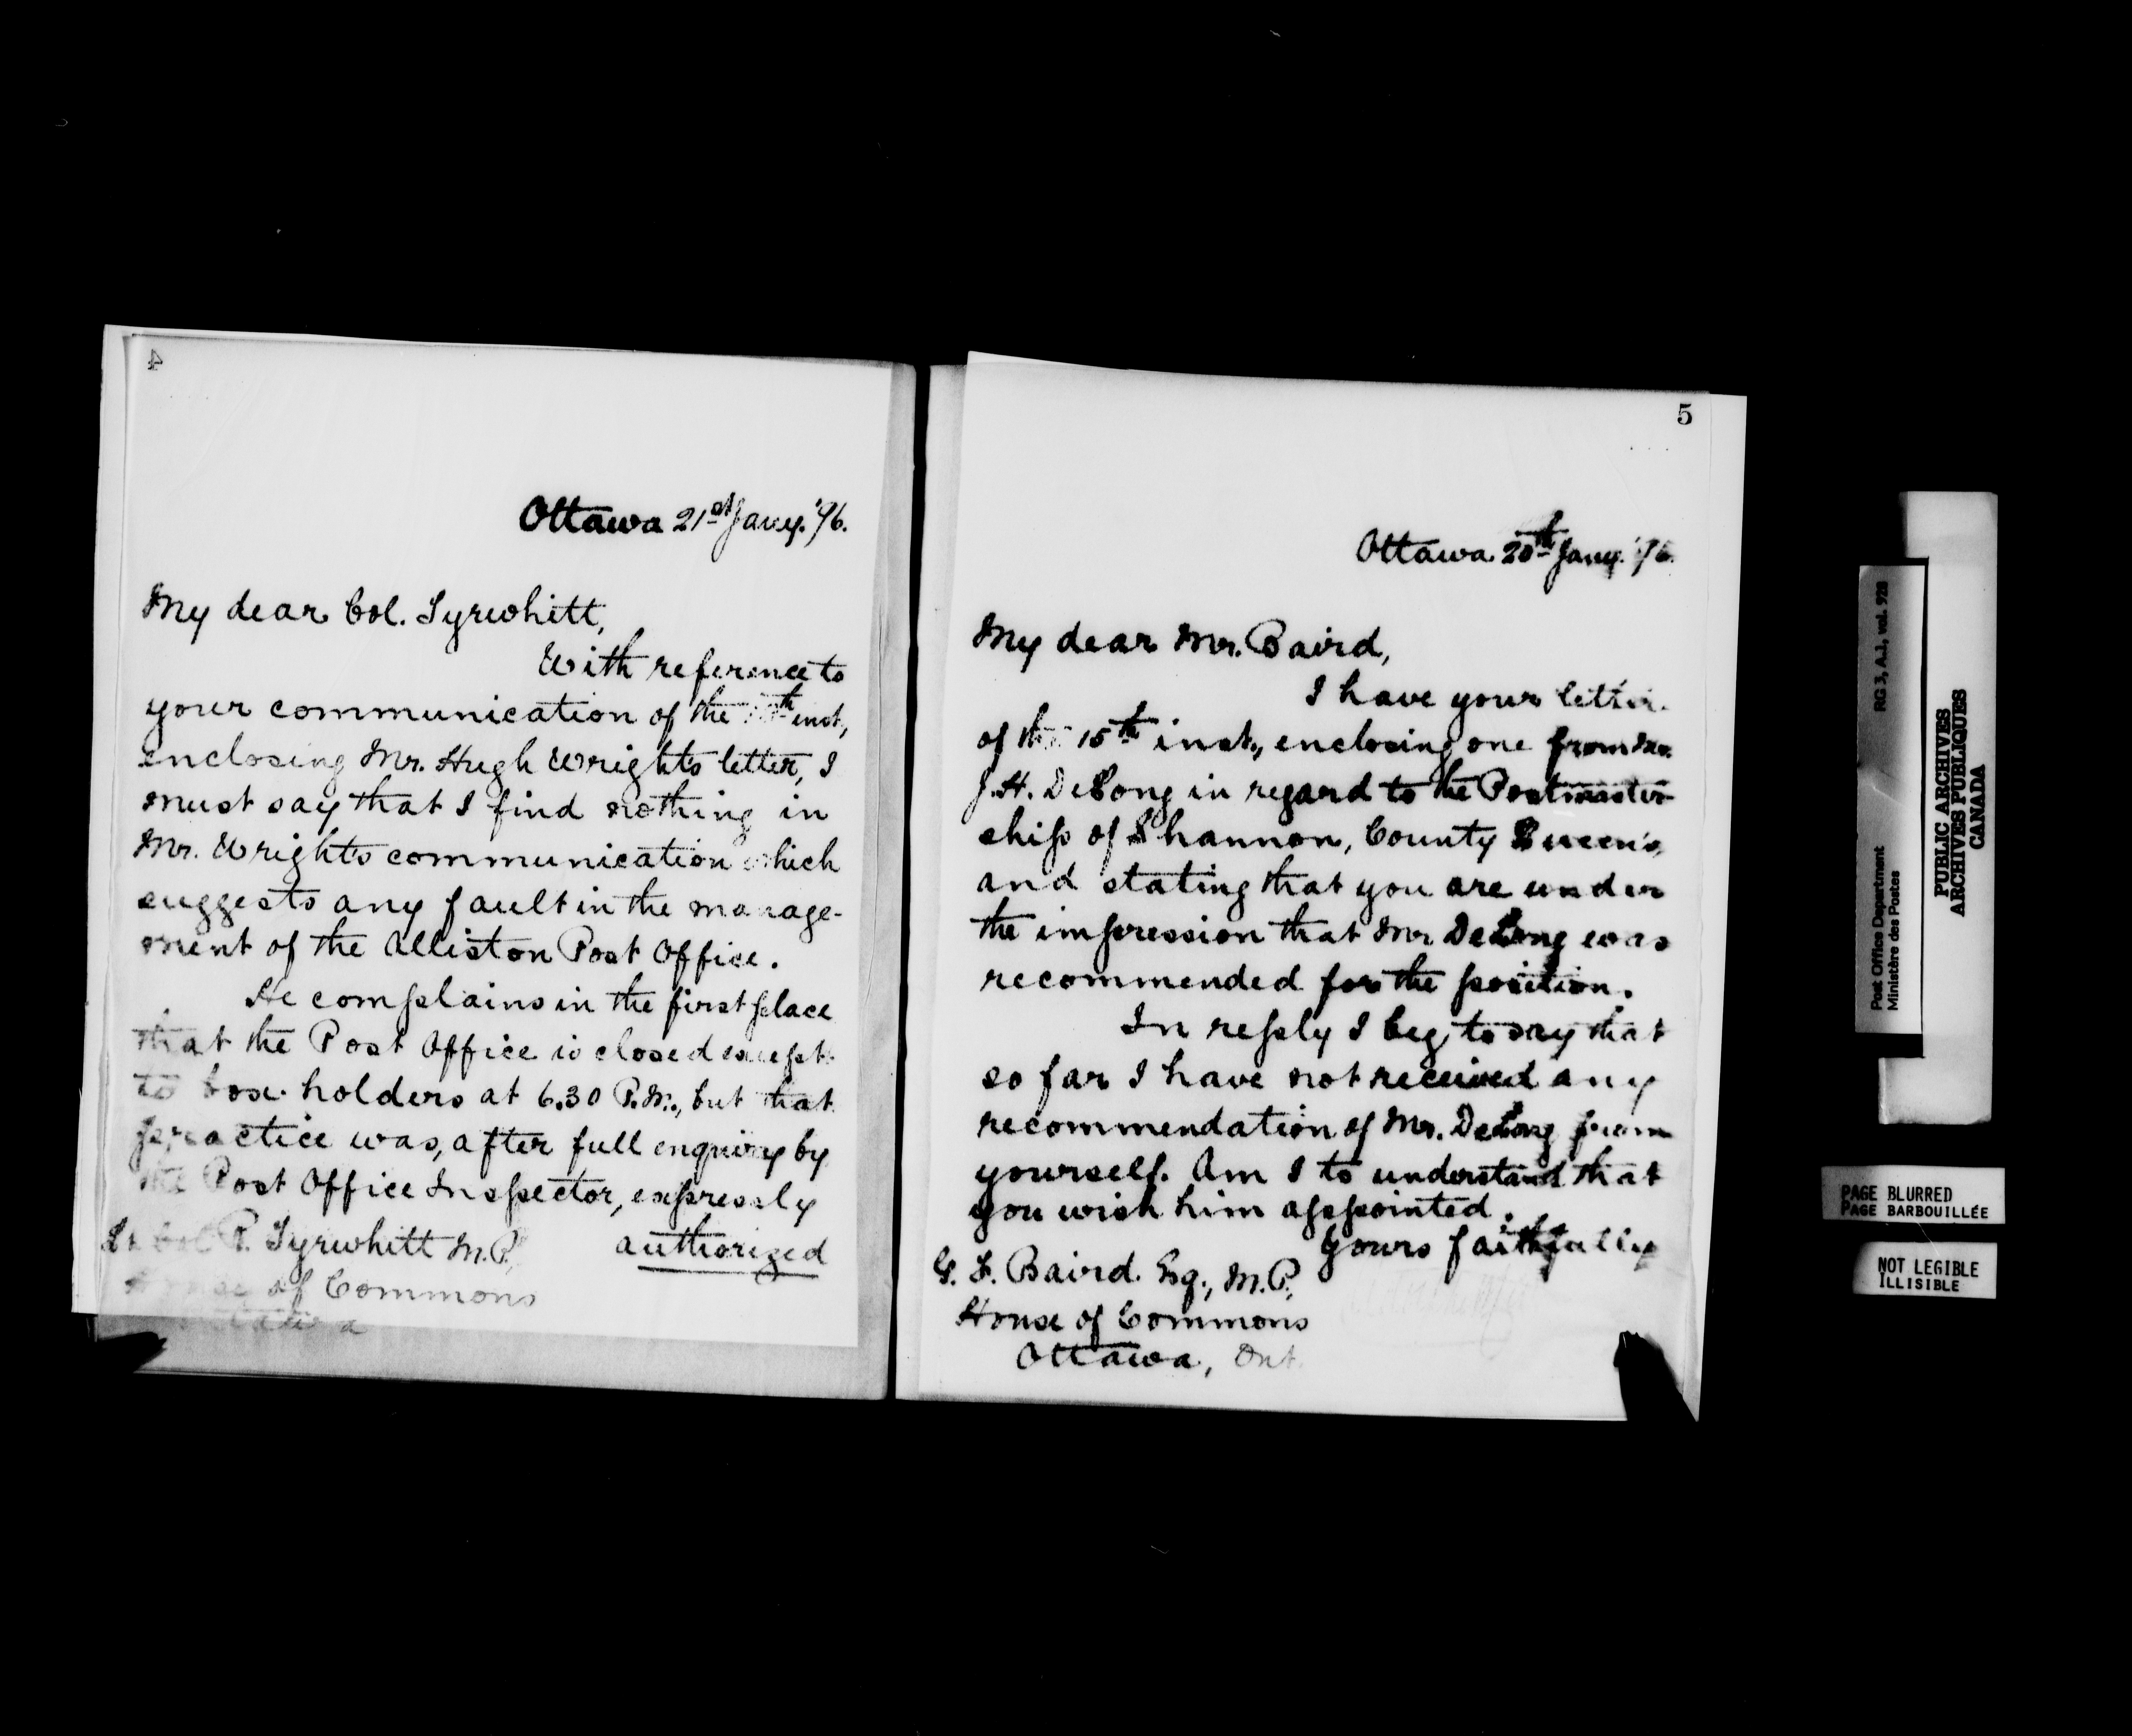 4
Ottawa 21st Jany. '96.
My dear Col. Tyrwhitt,
With reference to
your communication of the inst,
enclosing Mr. Hugh Wright's letter, I
must say that I find nothing in
Mr. Wright's communication which
suggests any fault in the manage-
ment of the Alliston Post Office.
He complains in the first place
that the Post Office is closed except
to box holders at 6.30 P.M., but that
practice was, after full enquiry by
the Post Office Inspector, expressly
authorized
Lt Col R. Tyrwhitt M.P.
House of Commons
Ottawa
5
Ottawa 20th Jany. '96.
My dear Mr. Baird,
I have your letter
of the 15th inst., enclosing one from Mr.
J.H. DeLong in regard to the Postmaster-
ship of Shannon, County Queen's,
and stating that you are under
the impression that Mr DeLong was
recommended for the position.
In reply I beg to say that
so far I have not received any
recommendation of Mr. DeLong from
yourself. Am I to understand that
you wish him appointed.
Yours faithfully
G. F. Baird. Esq., M.P.,
House of Commons
Ottawa, Ont.
Post Office Department
Ministère des Postes
RG 3, A.1, vol. 928
PUBLIC ARCHIVES
ARCHIVES PUBLIQUES
CANADA
PAGE BLURRED
PAGE BARBOUILLÉE
NOT LEGIBLE
ILLISIBLE